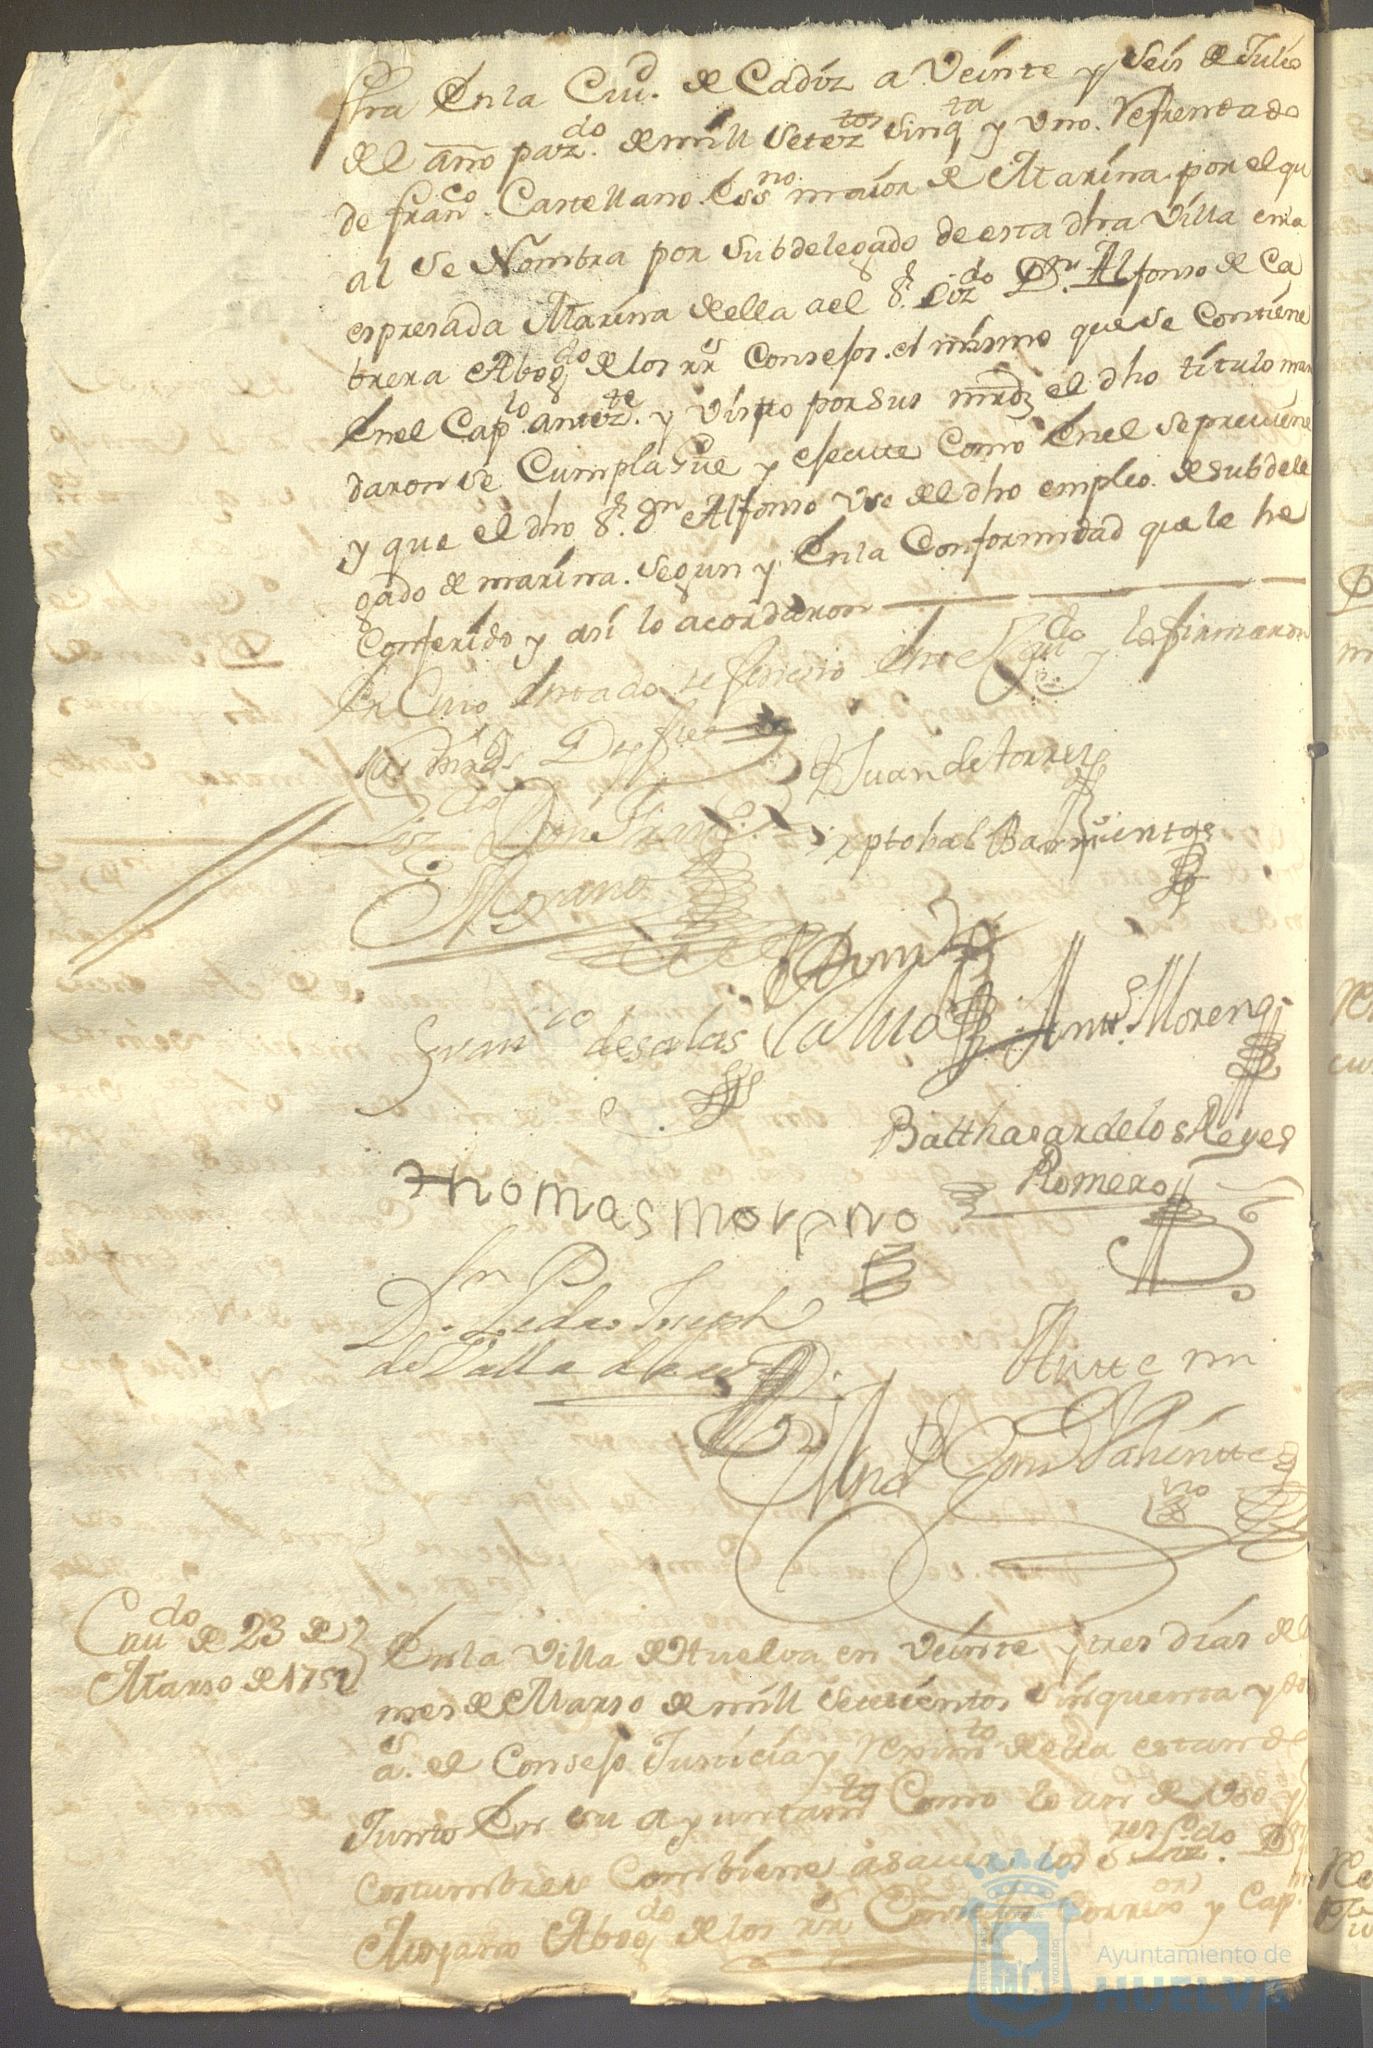 stra En la Ciud. de Cadiz a Veinte y Seis de Julio
del año pazdo. de mill Setezos Sinqta y Uno. Refrendado
de Franco. Castellano Essno maior de Marina por el qu
al Se Nombra por Subdelegado de esta dha Villa en la
espresada Marina de ella a el Sr. Lizdo Dn. Alfonso de Ca
brera Abogdo de los rrs Consejos. el mismo que Se Contiene
En el Caplo. antezte. y Visto por Sus mrdz el dho titulo man
daron Se Cumpla Gue y execute Como En el Se previene
y que el dho Sr. Dn Alfonso Use del dho empleo de Subdele
gado de marina. Segun y En la Conformidad que le he
Conferido y asi lo acordaron
En Cuio estado se fenecio Este Caudo y lo firmaron
Sus mrds Doy fee
Juan de torres
Lizdo Don Franco
Moyano
Xptobal Barrientos
Franco de salas
Anto. Moreno
Balthasar de los Reyes
Romero
thomas moreno
Dn Pedro Joseph
de Valladares
Ante mi
Caudo de 23 de
Marso de 1752
En la Villa de Huelva en Veinte y tres dias del
mes de Marso de mill Setecientos Sinquenta y dos
as. el Consejo Justicia y reximto de ella estando
Junto En su ayuntamto Como lo an de Uso y
Costumbre Combiene a saver los Sres Lizdo. Dn
Moyano Abogdo de los rrs Consejos Corrxor y Capn
Ayuntamiento de
HUELVA